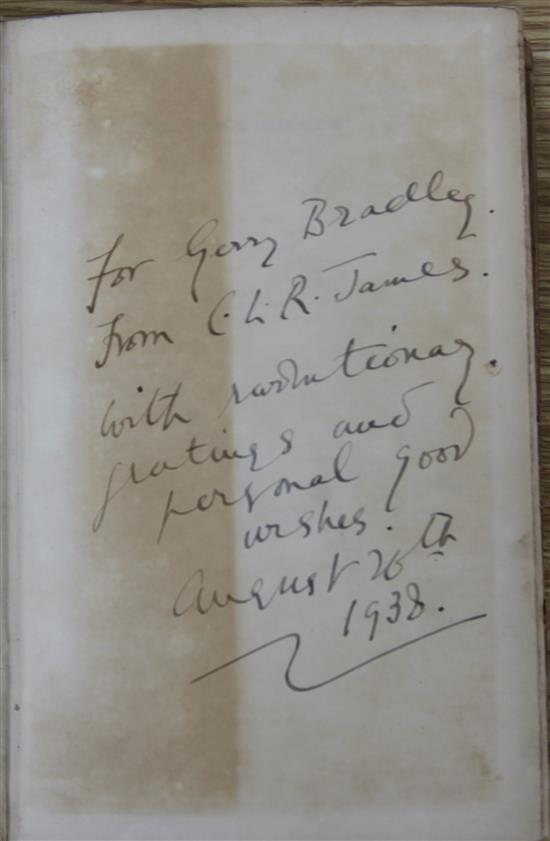 For Gerry Bradley.
From C.L.R. James.
with revolutionary
greetings and
personal good
wishes.
August 26th
1938.